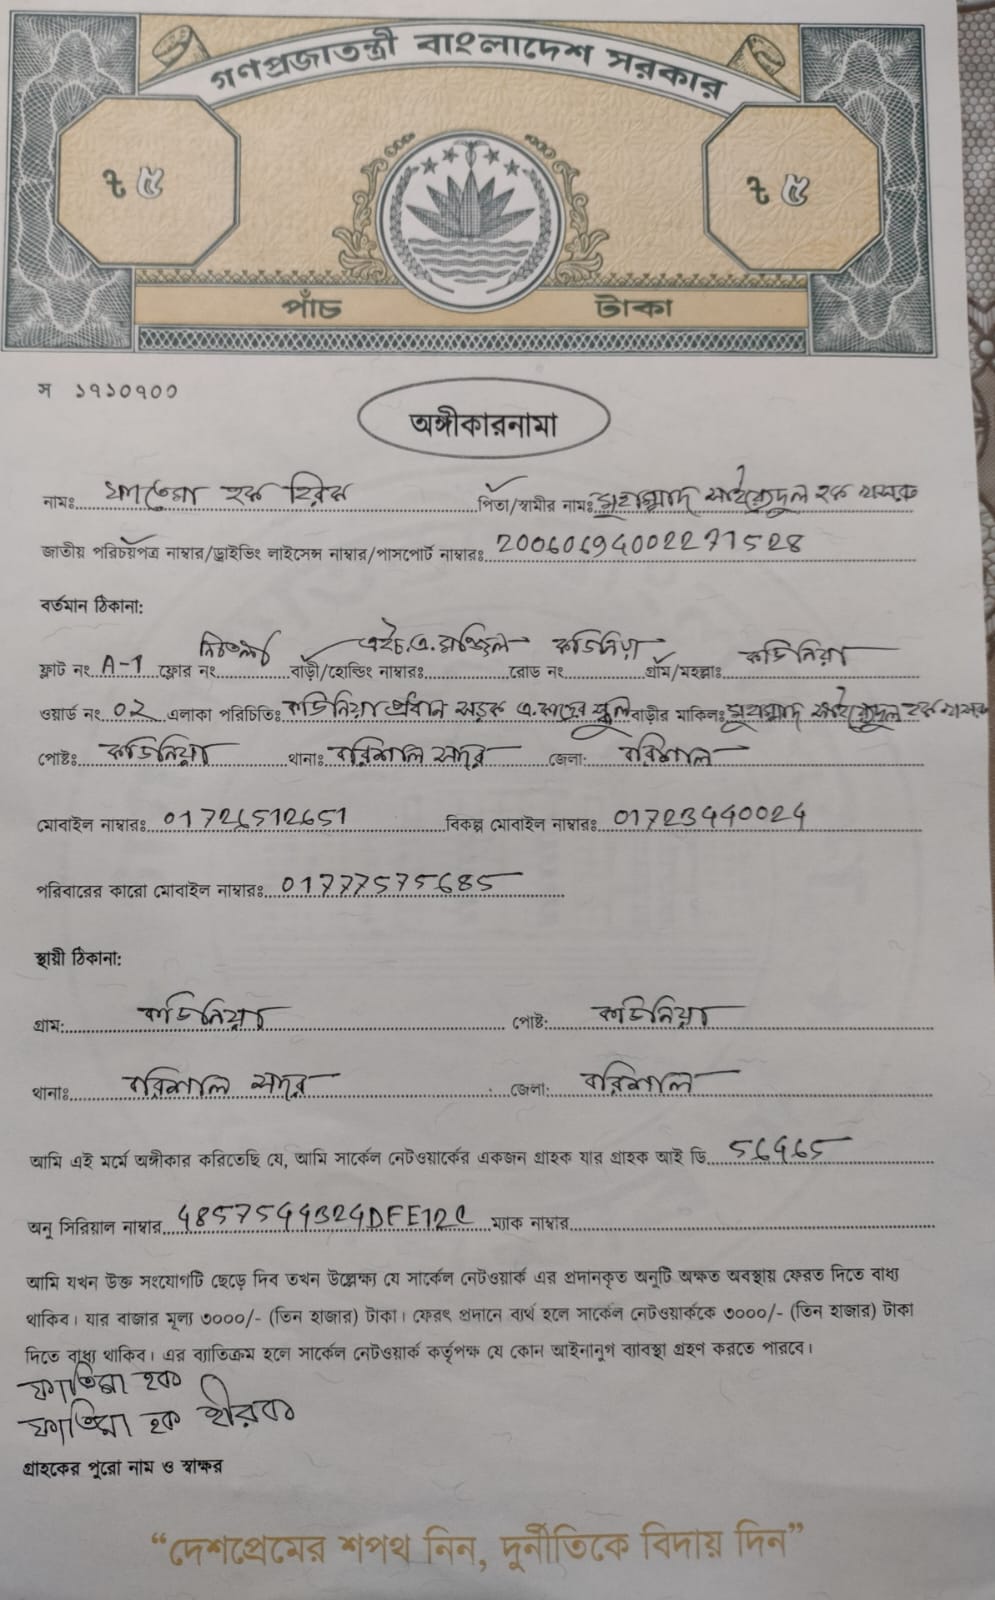 গণপ্রজাতন্ত্রী বাংলাদেশ সরকার
৳ ৫ ৳ ৫
পাঁচ টাকা
স ১৭১০৭০০
অঙ্গীকারনামা
নামঃ ফাতেমা হক হিরক পিতা/স্বামীর নামঃ মুহাম্মাদ সাইয়েদুল হক খসরু
জাতীয় পরিচয়পত্র নাম্বার/ড্রাইভিং লাইসেন্স নাম্বার/পাসপোর্ট নাম্বারঃ 20060694002271528
বর্তমান ঠিকানা:
ফ্লাট নং A-1 ফ্লোর নং নিচতলা বাড়ী/হোল্ডিং নাম্বারঃ এইচ.এ. মঞ্জিল রোড নং কাউনিয়া গ্রাম/মহল্লাঃ কাউনিয়া
ওয়ার্ড নং 02 এলাকা পরিচিতিঃ কাউনিয়া প্রধান সড়ক এ. কাদের স্কুল বাড়ীর মালিকঃ মুহাম্মাদ সাইয়েদুল হক খসরু
পোষ্টঃ কাউনিয়া থানাঃ বরিশাল সদর জেলা: বরিশাল
মোবাইল নাম্বারঃ 01726512651 বিকল্প মোবাইল নাম্বারঃ 01723440024
পরিবারের কারো মোবাইল নাম্বারঃ 01777575685
স্থায়ী ঠিকানা:
গ্রাম: কাউনিয়া পোষ্ট: কাউনিয়া
থানাঃ বরিশাল সদর জেলা: বরিশাল
আমি এই মর্মে অঙ্গীকার করিতেছি যে, আমি সার্কেল নেটওয়ার্কের একজন গ্রাহক যার গ্রাহক আই ডি 56465
অনু সিরিয়াল নাম্বার 48575444324DFE12C ম্যাক নাম্বার
আমি যখন উক্ত সংযোগটি ছেড়ে দিব তখন উল্লেক্ষ্য যে সার্কেল নেটওয়ার্ক এর প্রদানকৃত অনুটি অক্ষত অবস্থায় ফেরত দিতে বাধ্য
থাকিব। যার বাজার মূল্য ৩০০০/- (তিন হাজার) টাকা। ফেরৎ প্রদানে ব্যর্থ হলে সার্কেল নেটওয়ার্ককে ৩০০০/- (তিন হাজার) টাকা
দিতে বাধ্য থাকিব। এর ব্যাতিক্রম হলে সার্কেল নেটওয়ার্ক কর্তৃপক্ষ যে কোন আইনানুগ ব্যাবস্থা গ্রহণ করতে পারবে।
ফাতিমা হক
ফাতিমা হক হীরক
গ্রাহকের পুরো নাম ও স্বাক্ষর
“দেশপ্রেমের শপথ নিন, দুর্নীতিকে বিদায় দিন”